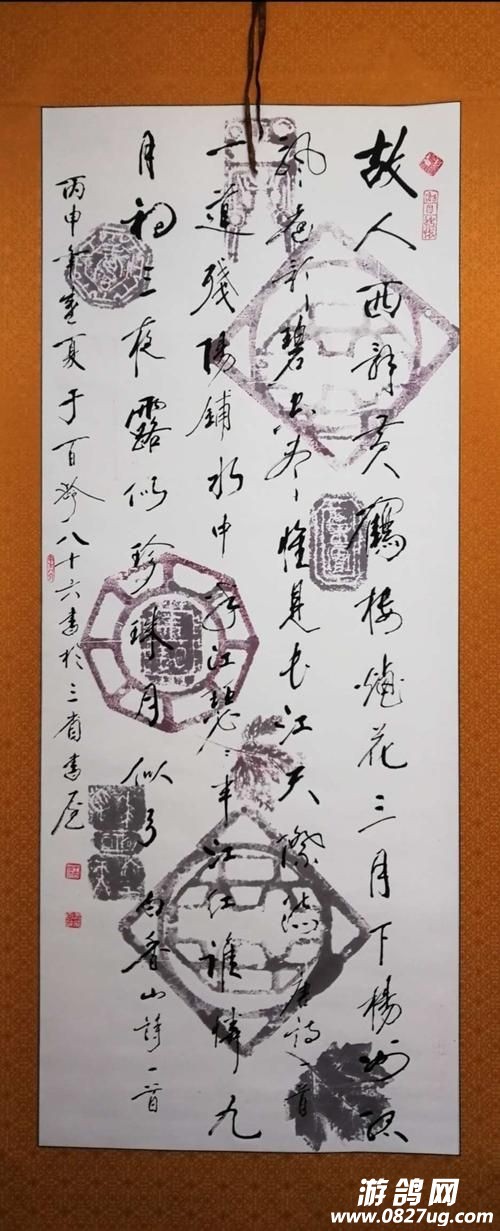 故人西辞黄鹤楼烟花三月下楊州孤
帆远影碧空尽惟見长江天際流 唐诗一首
一道殘陽鋪水中半江瑟瑟半江红谁憐九
月初三夜露似珍珠月似弓 白香山詩一首
丙申年夏于百八十六書於三省書屋
游鸽网
www.0827ug.com